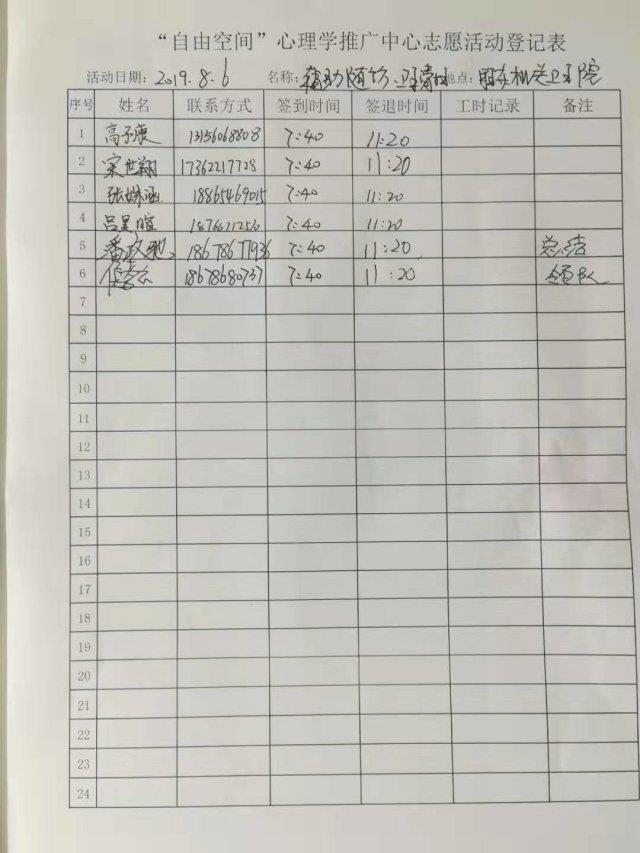 “自由空间”心理学推广中心志愿活动登记表
活动日期：2019.8.6 名称：辅助随访 地点：卫生院
序号 姓名 联系方式 签到时间 签退时间 工时记录 备注
1 高子康 13156068808 7:40 11:20
2 宋世翔 17362217728 7:40 11:20
3 张姝涵 18865469015 7:40 11:20
4 吕昊暄 7:40 11:20
5 18678677936 7:40 11:20 总结
6 18678680737 7:40 11:20 领队
7
8
9
10
11
12
13
14
15
16
17
18
19
20
21
22
23
24